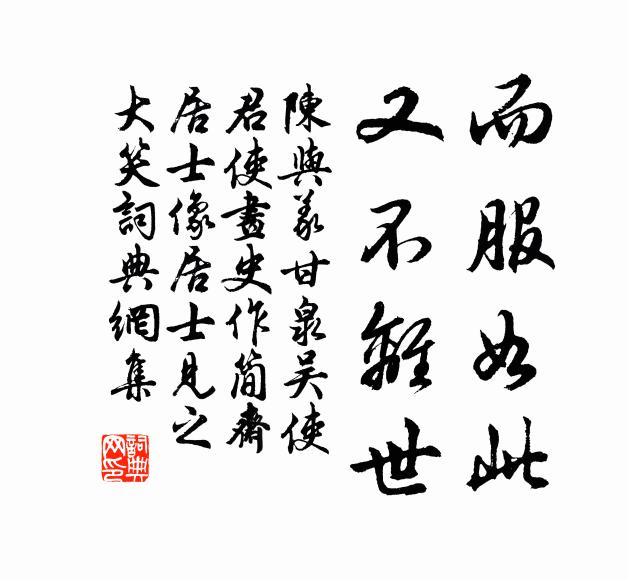 而服如此
又不離世
陳與義甘泉吴使
君使畫史作簡齋
居士像居士見之
大笑詞典網集
詞典網印